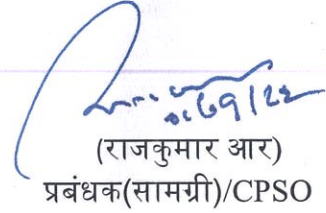 (राजकुमार आर)
प्रबंधक(सामग्री)/CPSO